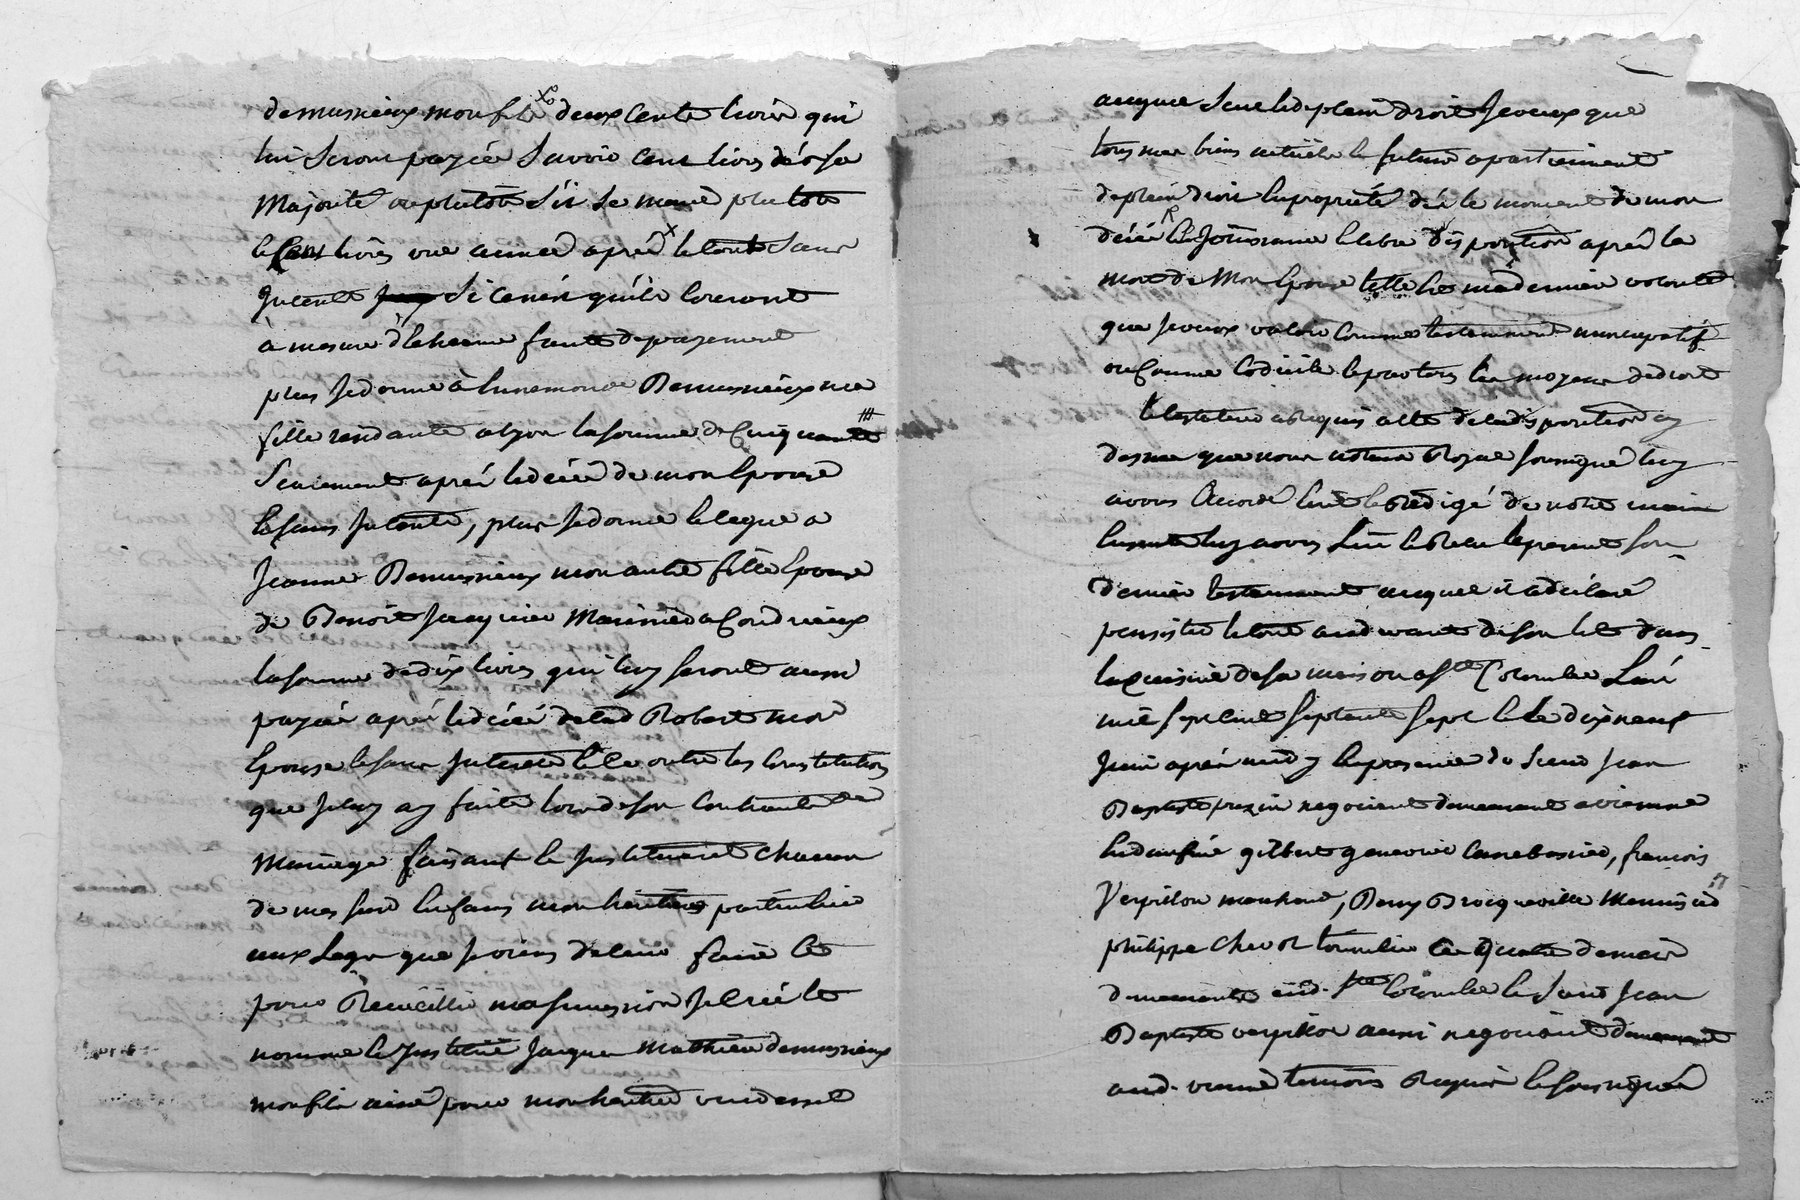 demusrieux mon fils deux cents livres qui
lui seront payée Savoir cent livres dés sa
Majorité ou plutôt s'il se marie plutôt
et cent livres une année aprés le tout sans
jnterets si ce n'est qu'ils coureront
à mesure d'Echéance faute de payement
plus Je donne à Demusrieux ma
fille residante a lyon la somme de Cinquante ₶
Seulement aprés le décés de mon Epouse
et sans jnterets, plus Je donne et legue a
Jeanne Demusrieux mon autre fille Epouse
de Benoit Jacquier Marinier a Condrieux
la somme de dix livres qui luy seront aussi
payée aprés le décés de lad Robert mon
Epouse et sans jnterets et ce outre les Constitutions
que Je luy ay faite lors de son Contract de
Mariage faisant et jnstituant chacun
de mes sud Enfans mon heritiers particulier
aux Legs que je viens de leur faire et
pour Recueillir ma succession Je crée et
nomme et jnstitue Jacques Mathieu demusrieux
mon fils ainé pour mon heritier universel
auquel seul et de plein droit Je veux que
tous mes biens actuels et future apartiennent
de plein droit la proprieté dés le moment de mon
décés et la Jouissance et libre disposition aprés la
mort de Mon Epouse telle est ma derniere volonté
que Je veux valoir comme testament nuncupatif
ou Comme Codicile et par tous les moyens de droit
le testateur a Requis acte de la disposition cy
dessus que nous notaire Royal soussigné luy
avons Accordé Ecrit et Redigé de notre main
Ensuite luy avons Lu et Relu le present son
dernier testament auquel il a déclaré
persister et au devant de son lit dans
la Cuisine de sa maison a Ste Colombe L'an
mil sept cent septante sept et le dix neuf
Juin aprés midy En presence de Sieur Jean
Baptiste negociant demeurant a vienne
En daufiné gilbert Cabaretier, françois
Verpillon marchand, Remy Brocqueville Menuisier
philippe Chevot tonnelier les quatre
demeurants aud. Ste Colombe et Sieur Jean
Baptiste verpillon aussi negociant demeurant
aud. vienne temoins Requis et soussignés